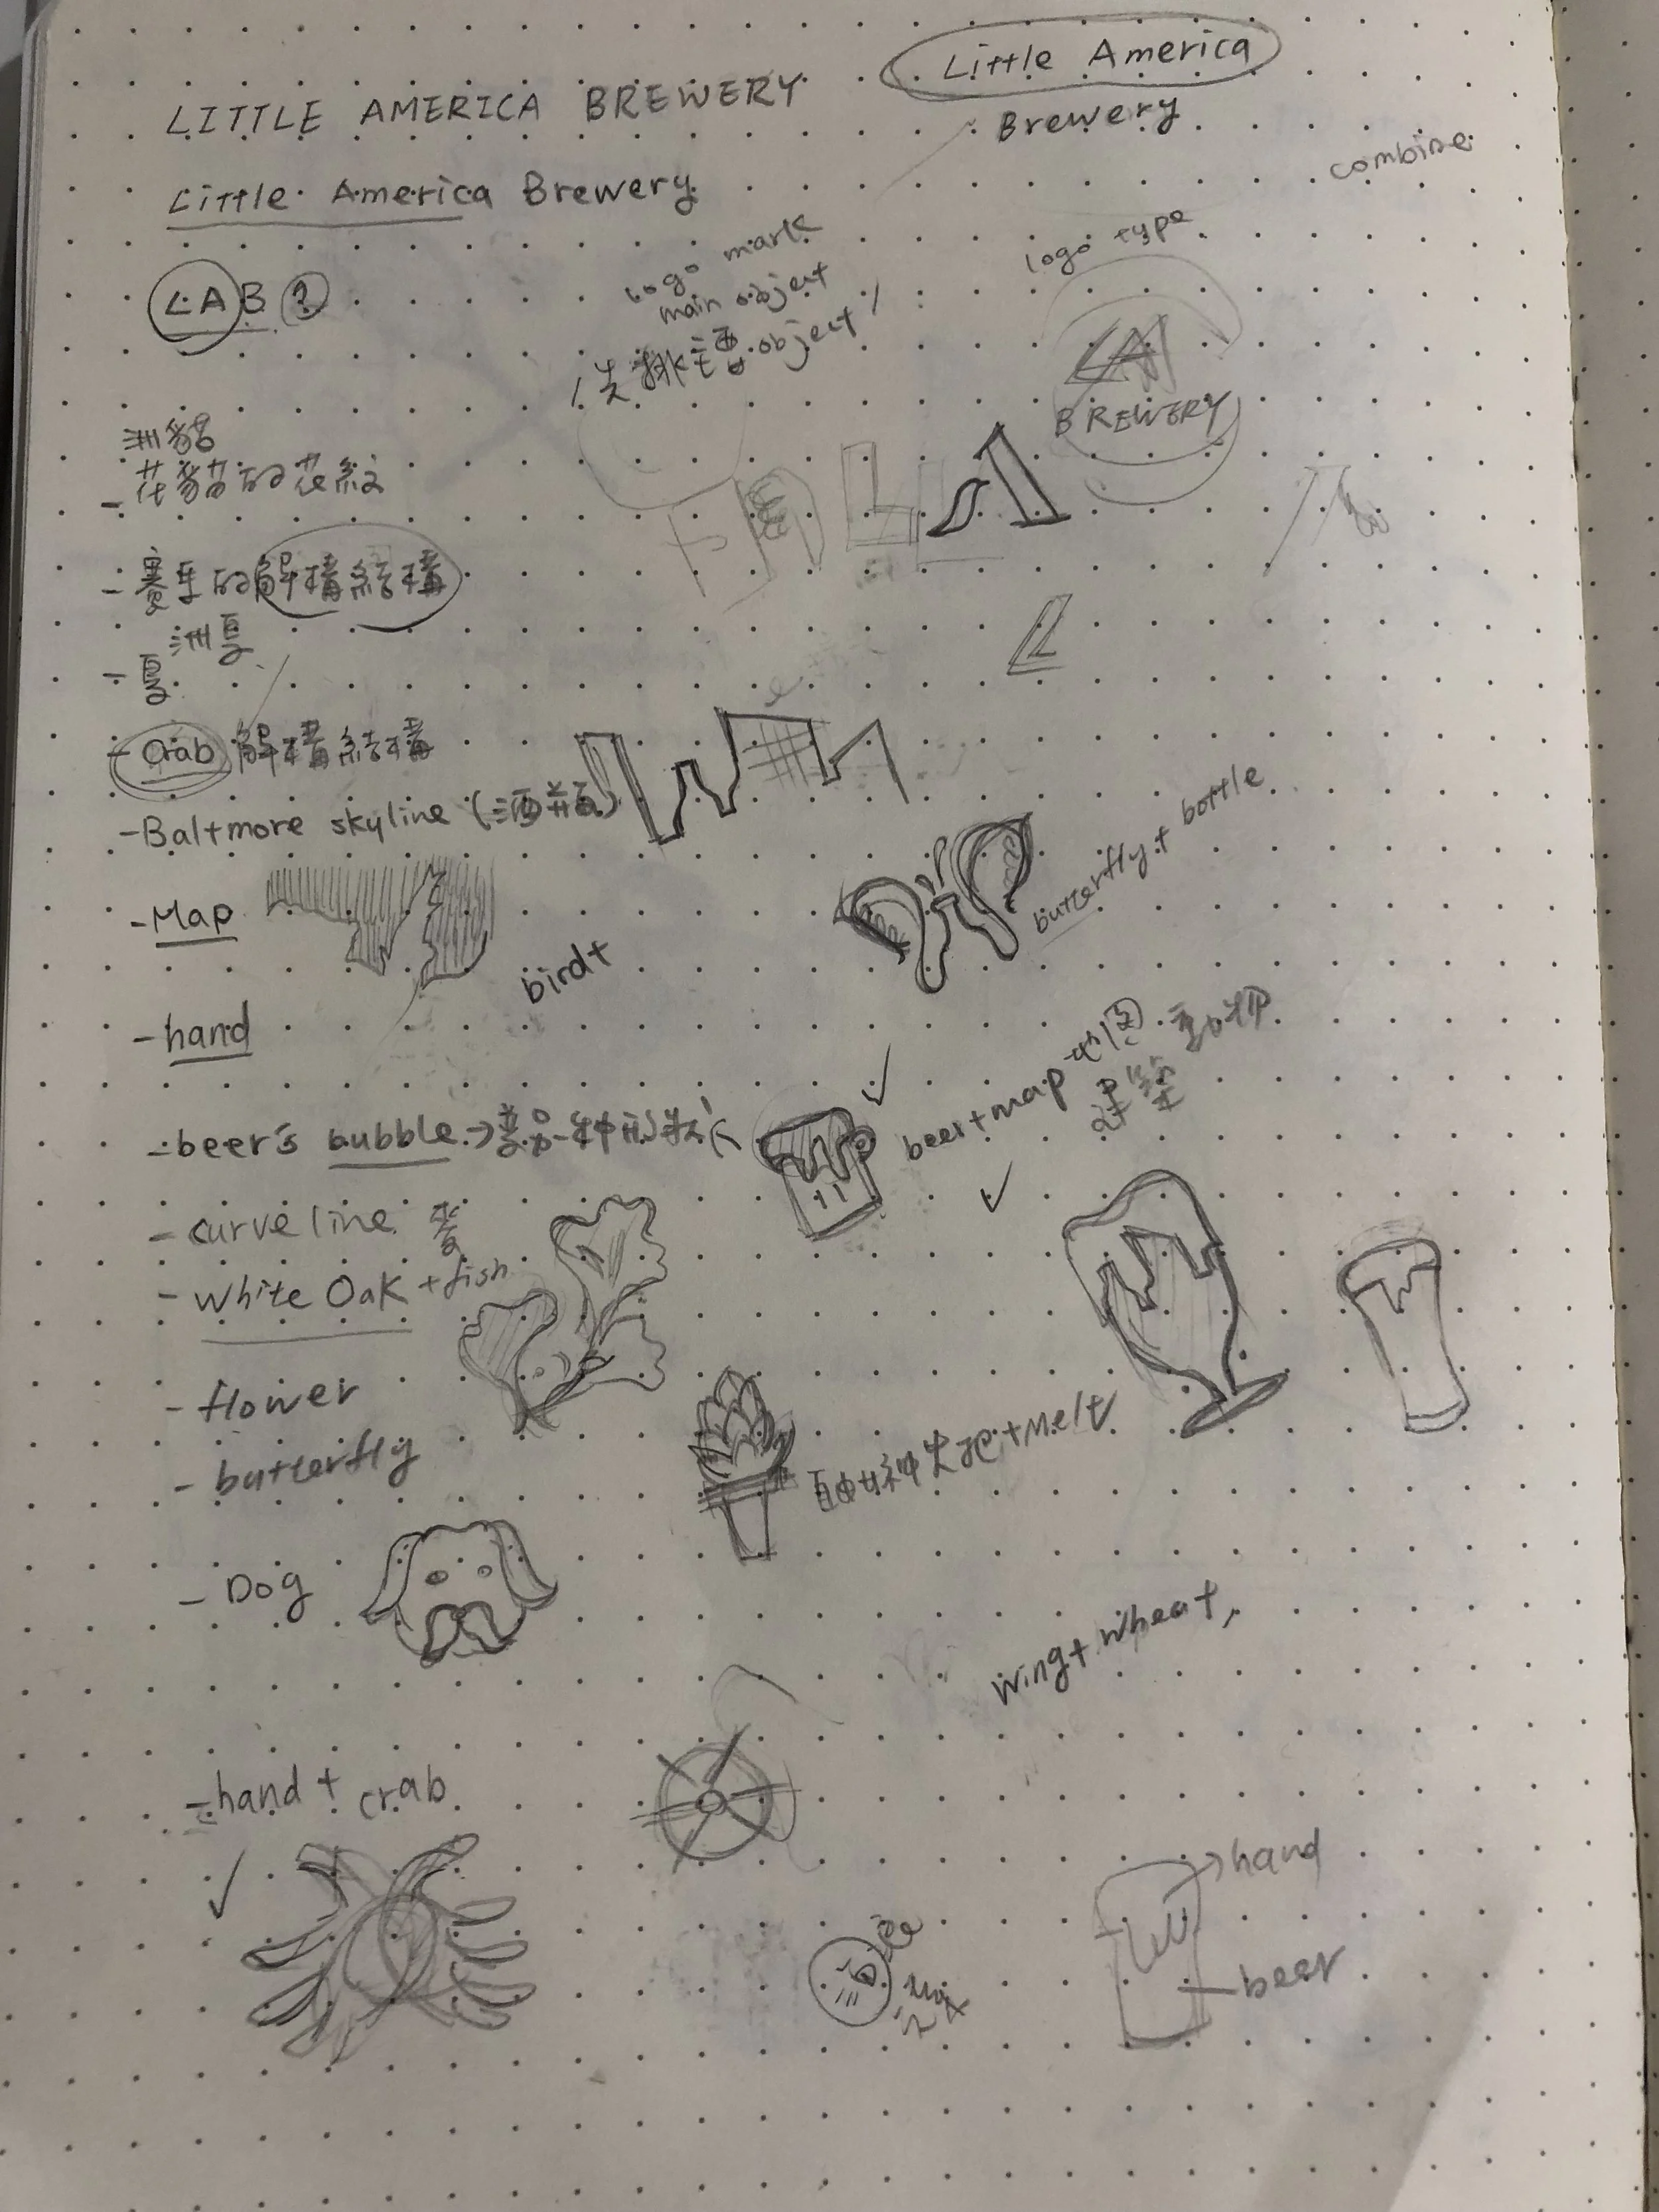 Little America
LITTLE AMERICA BREWERY
Brewery
combine
Little America Brewery
LAB ?
logo mark
main object
先排主要object
logo type
LA
BREWERY
洲貓
- 花貓的花紋
LA
- 賽車的解構結構
洲夏
- 夏
L
- Crab 解構結構
- Baltmore skyline (酒瓶)
butterfly + bottle
- Map
bird+
- hand
beer + map
- beer's bubble →
- curve line
- White Oak + fish
- flower
自由女神火把 + Melt
- butterfly
- Dog
Wing + wheat
- hand + crab
hand
beer